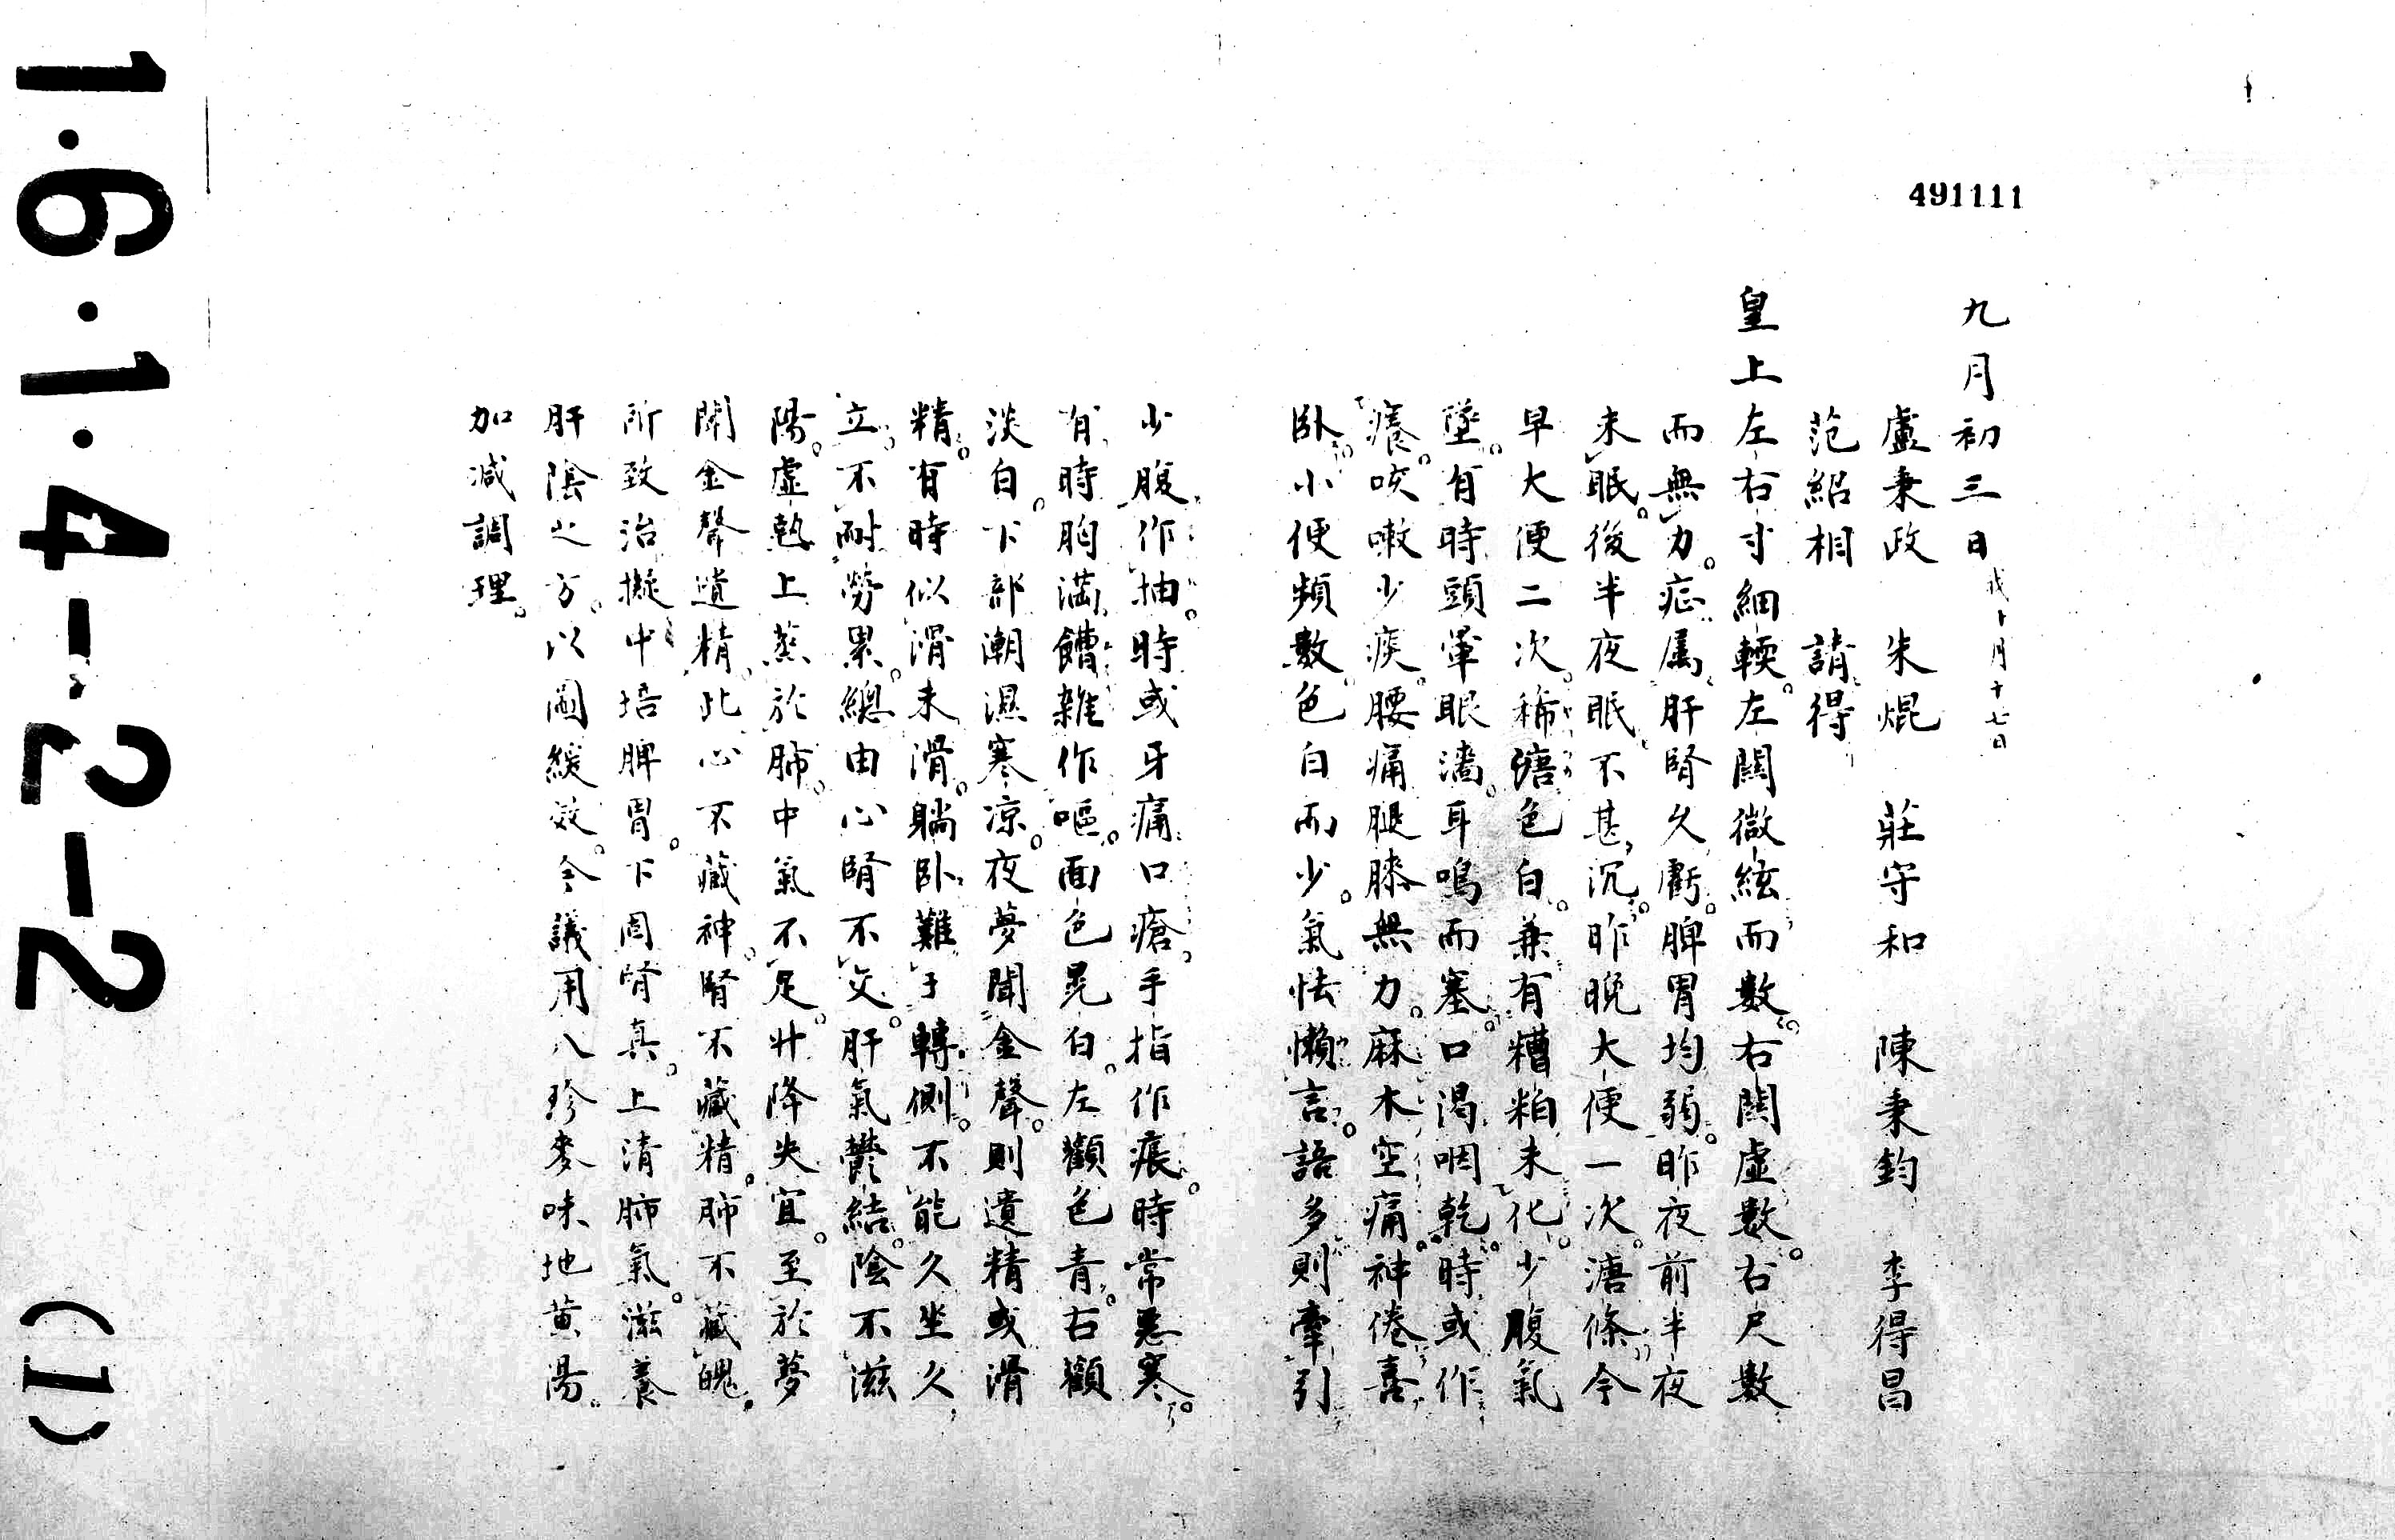 491111
九月初三日 戊十月十七日
盧秉政 朱焜 莊守和 陳秉鈞 李得昌
范紹相 請得
皇上左右寸細輭。左關微絃而數。右關虛數。右尺數
而無力。症屬肝腎久虧。脾胃均弱。昨夜前半夜
未眠。後半夜眠不甚沉。昨晚大便一次。溏條。今
早大便二次。稀溏色白。兼有糟粕未化。少腹氣
墜。有時頭暈眼濇。耳鳴而塞。口渴咽乾。時或作
癢。咳嗽少痰。腰痛腿膝無力。麻木空痛。神倦喜
臥。小便頻數。色白而少。氣怯懶言。語多則牽引
少腹作抽。時或牙痛口瘡。手指作痕。時常惡寒。
有時胸滿。饍雜作嘔。面色晃白。左顴色青。右顴
淡白。下部潮濕寒涼。夜夢聞金聲。則遺精或滑
精。有時似滑未滑。躺臥難于轉側。不能久坐久
立。不耐勞累。總由心腎不交。肝氣鬱結。陰不滋
陽。虛熱上蒸於肺。中氣不足。升降失宜。至於夢
聞金聲遺精。此心不藏神。腎不藏精。肺不藏魄。
所致治擬中培脾胃。下固腎真。上清肺氣。滋養
肝陰之方。以圖緩效。今議用八珍麥味地黃湯。
加減調理。
1·6·1·4-2-2 (1)